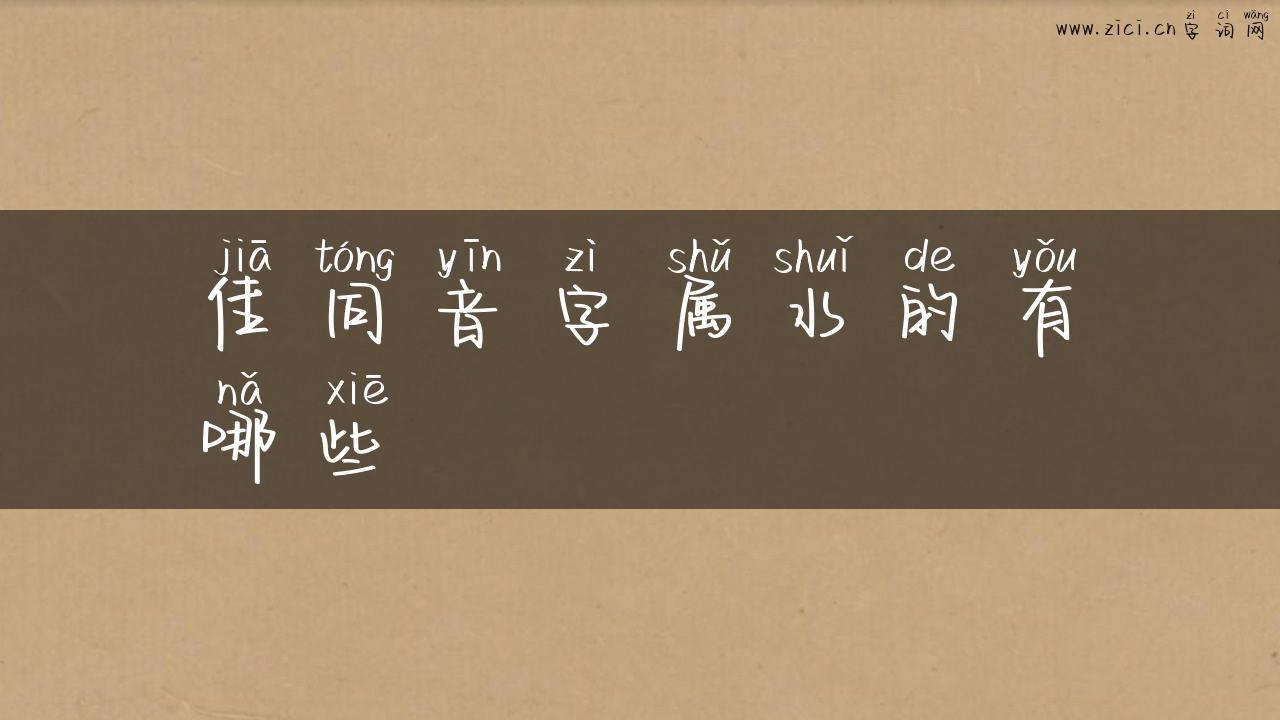 zì cí wǎng
www.zici.cn 字 词 网
jiā tóng yīn zì shǔ shuǐ de yǒu
佳 同 音 字 属 水 的 有
nǎ xiē
哪 些